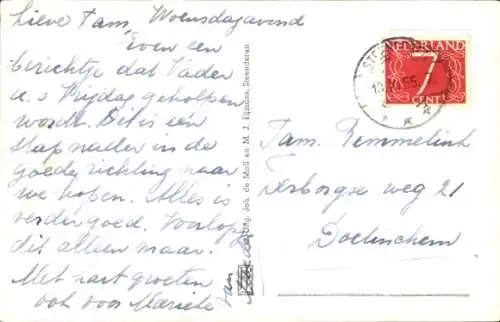 Lieve Fam. Woensdagavond
Even een
berichtje dat Vader
a.s Vrijdag geholpen
wordt. Dit is een
stap nader in de
goede richting naar
we hopen. Alles is
verder goed. Voorlopig
dit alleen maar.
Met hart groeten
ook voor Marietje
van Moeder
Uitg. Joh. de Moll en M. J. Eijmans, Steenderen
NEDERLAND
7
CENT
STEENDEREN
Fam. Remmelink
Terborgse weg 21
Doetinchem